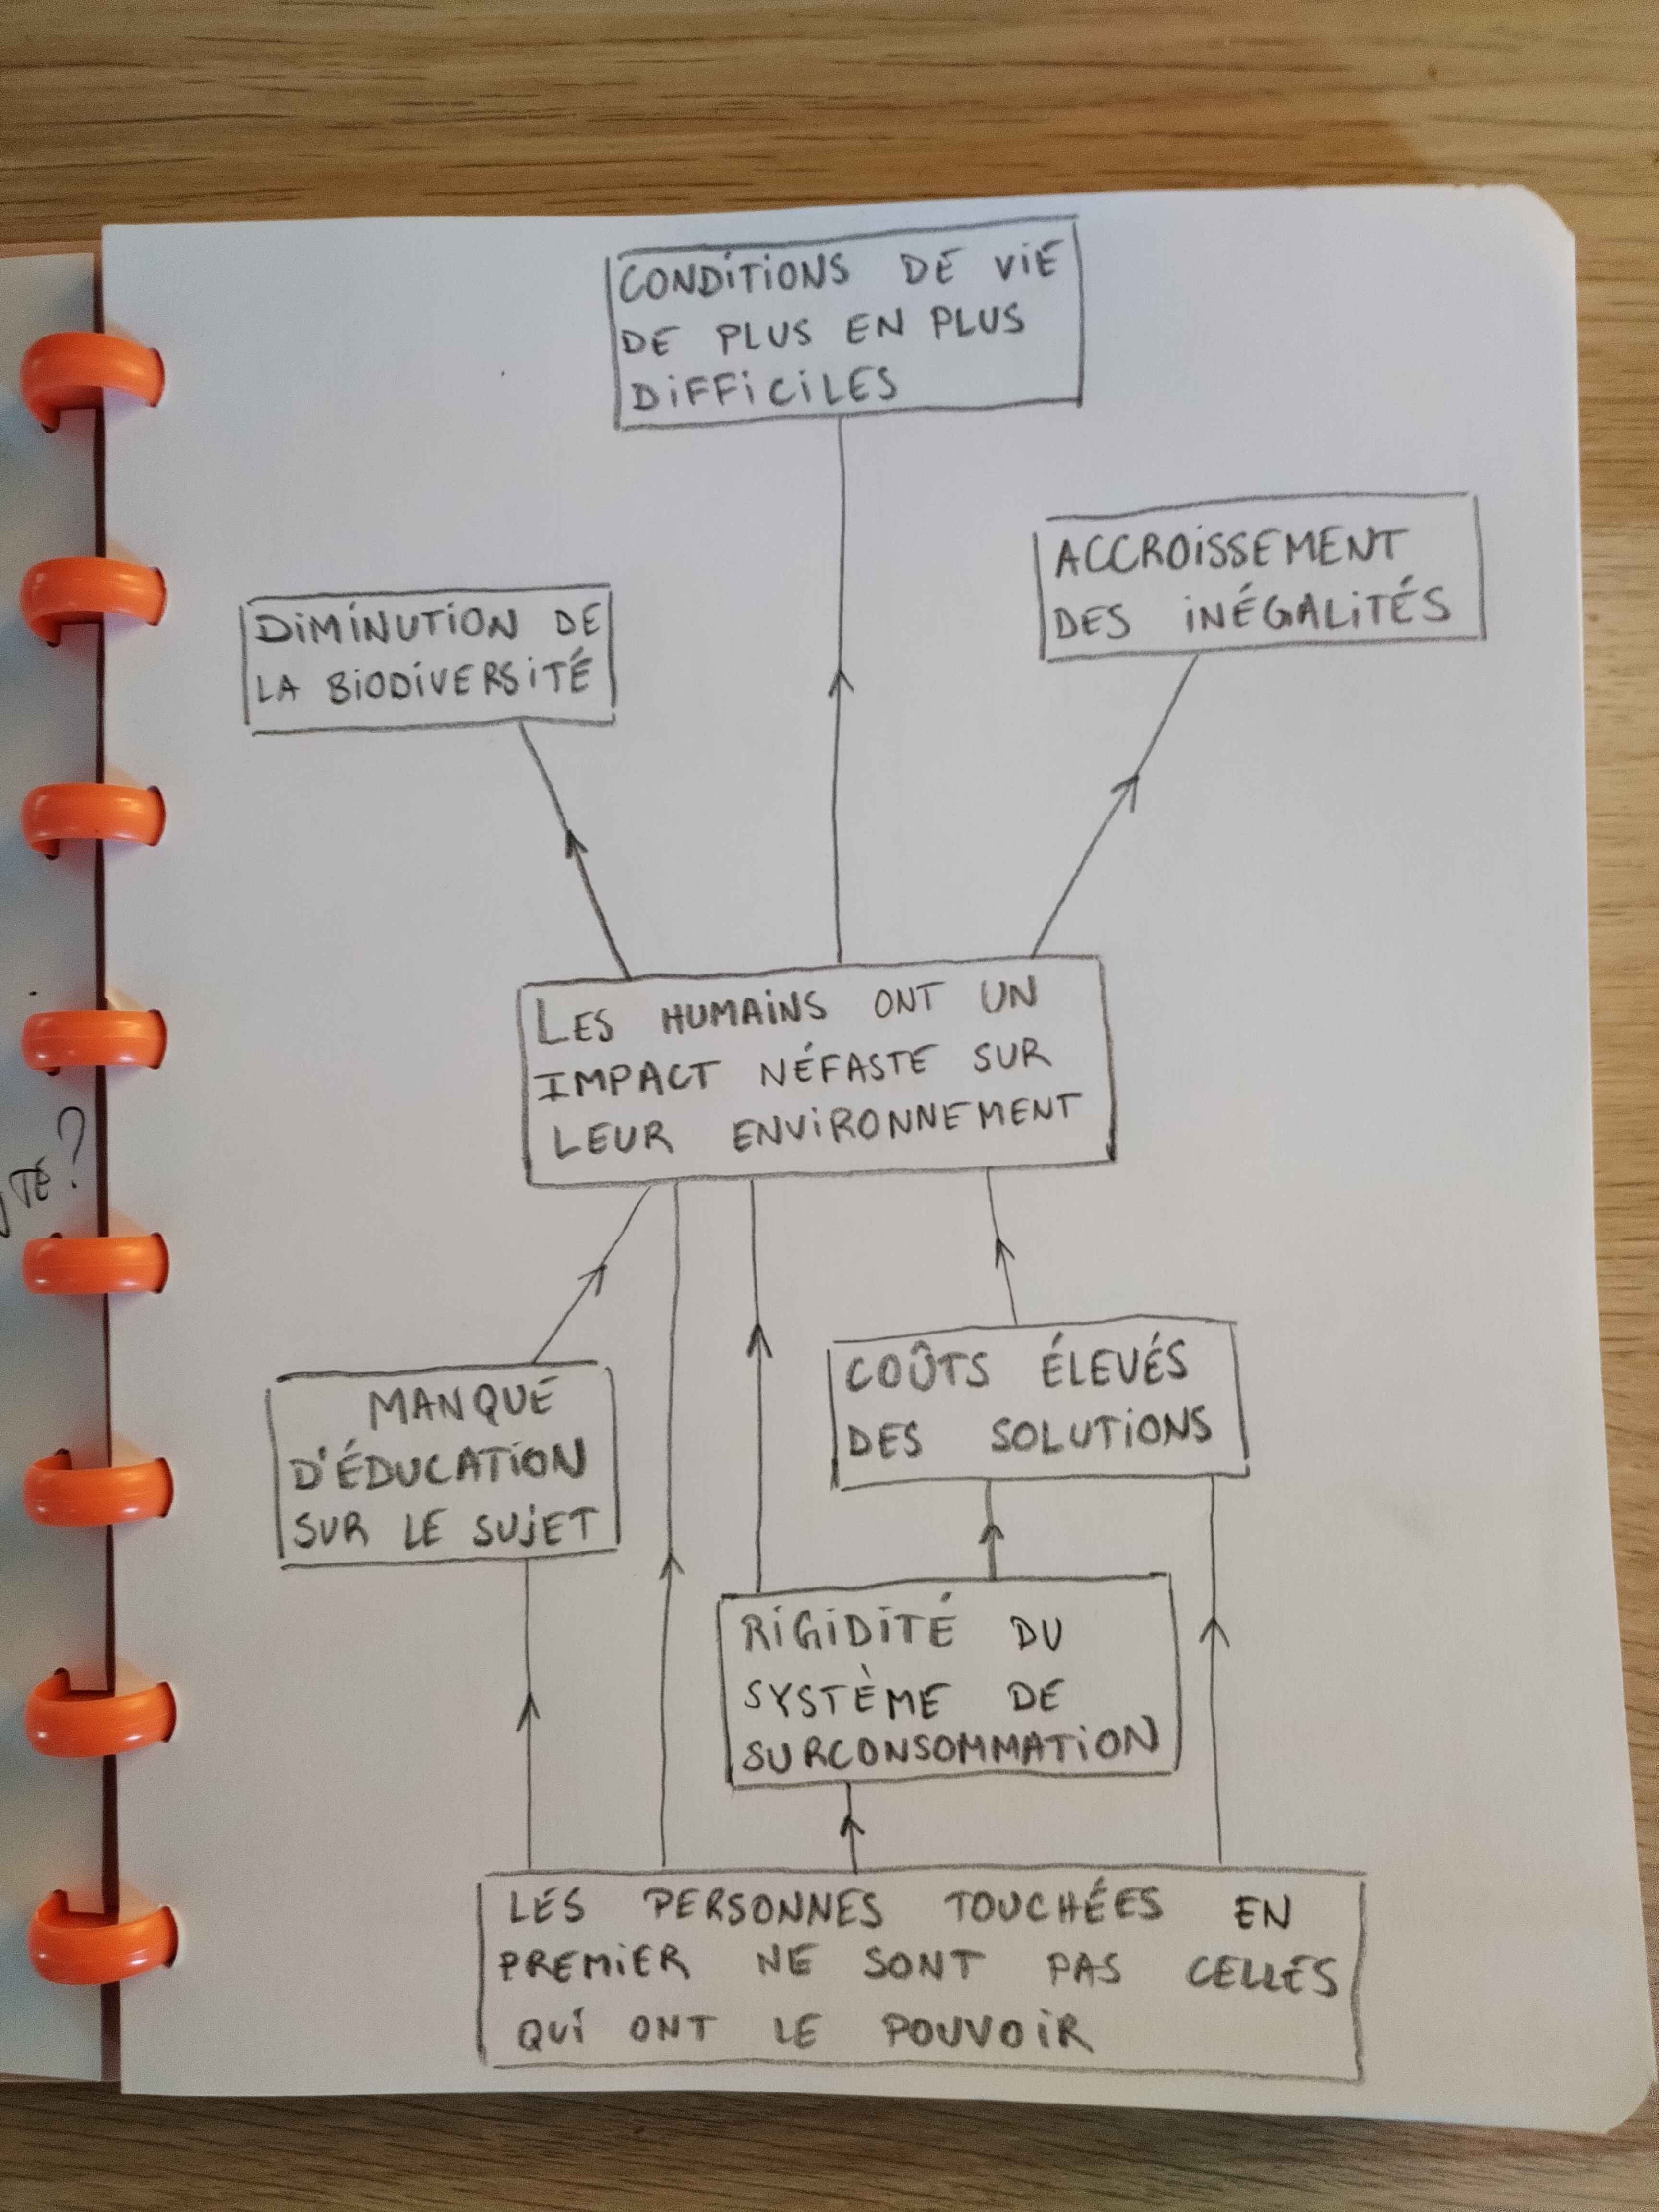 CONDITIONS DE VIE
DE PLUS EN PLUS
DIFFICILES
ACCROISSEMENT
DES INÉGALITÉS
DIMINUTION DE
LA BIODIVERSITÉ
LES HUMAINS ONT UN
IMPACT NÉFASTE SUR
LEUR ENVIRONNEMENT
COÛTS ÉLEVÉS
DES SOLUTIONS
MANQUE
D'ÉDUCATION
SUR LE SUJET
RIGIDITÉ DU
SYSTÈME DE
SURCONSOMMATION
LES PERSONNES TOUCHÉES EN
PREMIER NE SONT PAS CELLES
QUI ONT LE POUVOIR